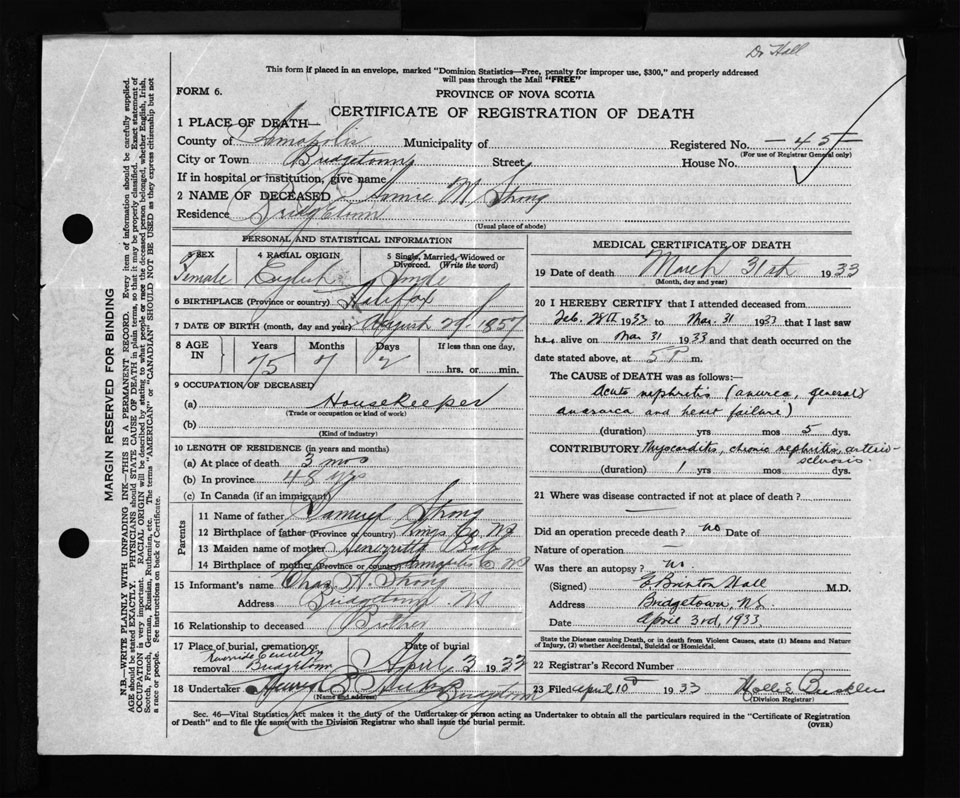 Dr Hall
This form if placed in an envelope, marked "Dominion Statistics—Free, penalty for improper use, $300," and properly addressed
will pass through the Mail "FREE"
FORM 6.
PROVINCE OF NOVA SCOTIA
CERTIFICATE OF REGISTRATION OF DEATH
1 PLACE OF DEATH—
County of Annapolis Municipality of Registered No. 45
(For use of Registrar General only)
City or Town Bridgetown Street House No.
If in hospital or institution, give name
2 NAME OF DECEASED Annie M Strong
Residence Bridgetown
(Usual place of abode)
PERSONAL AND STATISTICAL INFORMATION
3 SEX 4 RACIAL ORIGIN 5 Single, Married, Widowed or Divorced. (Write the word)
Female English Single
6 BIRTHPLACE (Province or country) Halifax
7 DATE OF BIRTH (month, day and year) August 29. 1857
8 AGE IN Years Months Days If less than one day,
75 7 2 hrs. or min.
9 OCCUPATION OF DECEASED
(a) Housekeeper
(Trade or occupation or kind of work)
(b)
(Kind of industry)
10 LENGTH OF RESIDENCE (in years and months)
(a) At place of death 3 mos
(b) In province 48 yrs
(c) In Canada (if an immigrant)
Parents
11 Name of father Samuel Strong
12 Birthplace of father (Province or country) Kings Co. NS
13 Maiden name of mother
14 Birthplace of mother (Province or country) Annapolis Co NS
15 Informant's name Chas. H. Strong
Address Bridgetown NS
16 Relationship to deceased Brother
17 Place of burial, cremation or removal Date of burial
Riverside Cemetery
Bridgetown April 3 1933
18 Undertaker
(Name and address)
MEDICAL CERTIFICATE OF DEATH
19 Date of death March 31st 1933
(Month, day and year)
20 I HEREBY CERTIFY that I attended deceased from
Feb. 28th 1933 to Mar. 31 1933 that I last saw
her alive on Mar 31 1933 and that death occurred on the
date stated above, at 5 P m.
The CAUSE OF DEATH was as follows:—
Acute nephritis (anurea, general
anasarca and heart failure)
(duration) yrs mos 5 dys.
CONTRIBUTORY Myocarditis, chronic nephritis, arterio-
sclerosis.
(duration) 1 yrs mos dys.
21 Where was disease contracted if not at place of death?
Did an operation precede death? no Date of
Nature of operation —
Was there an autopsy? no.
(Signed) E. Brinton Hall M.D.
Address Bridgetown, N.S.
Date April 3rd, 1933.
State the Disease causing Death, or in death from Violent Causes, state (1) Means and Nature
of Injury, (2) whether Accidental, Suicidal or Homicidal.
22 Registrar's Record Number
23 Filed April 10 1933
(Division Registrar)
Sec. 46—Vital Statistics Act makes it the duty of the Undertaker or person acting as Undertaker to obtain all the particulars required in the "Certificate of Registration
of Death" and to file the same with the Division Registrar who shall issue the burial permit.
(OVER)
MARGIN RESERVED FOR BINDING
N.B.—WRITE PLAINLY WITH UNFADING INK—THIS IS A PERMANENT RECORD. Every item of information should be carefully supplied.
AGE should be stated EXACTLY. PHYSICIANS should STATE CAUSE OF DEATH in plain terms, so that it may be properly classified. Exact statement of
OCCUPATION is very important. RACIAL ORIGIN will be described by stating to what people or race the deceased person belonged, whether English, Irish,
Scotch, French, German, Russian, Ruthenian, etc. The terms "AMERICAN" or "CANADIAN" SHOULD NOT BE USED as they express citizenship but not
a race or people. See instructions on back of Certificate.